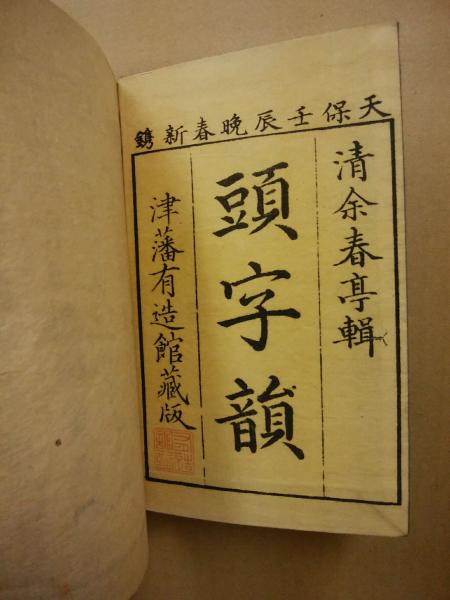 天保壬辰晩春新鐫
清余春亭輯
頭字韻
津藩有造館藏版